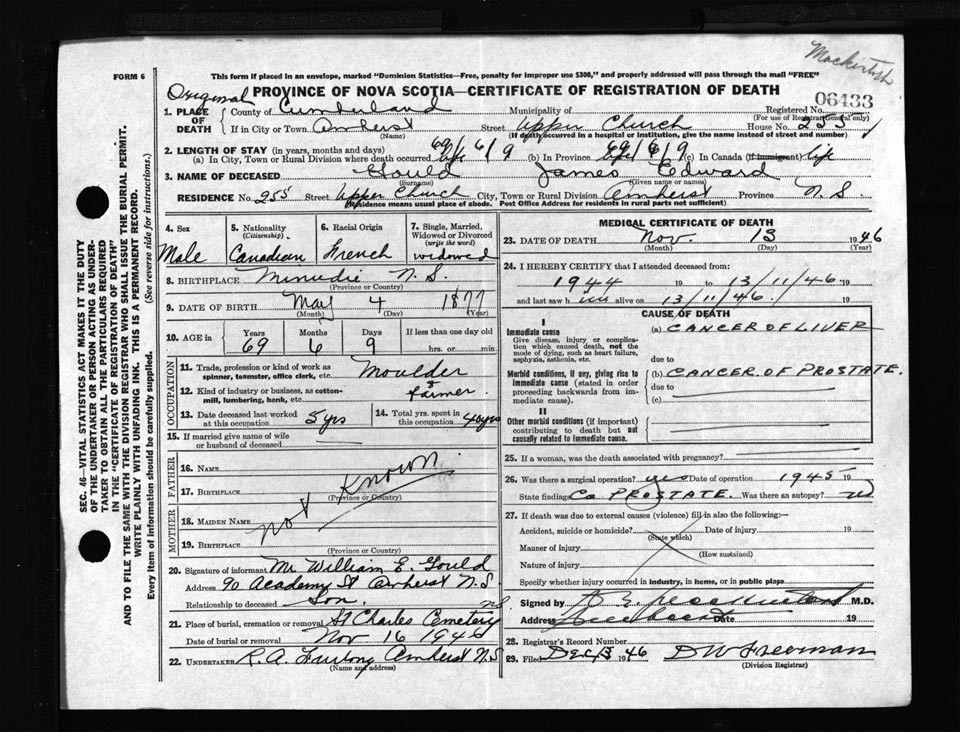 Mackintosh
FORM 6
This form if placed in an envelope, marked "Dominion Statistics—Free, penalty for improper use $300," and properly addressed will pass through the mail "FREE"
Original PROVINCE OF NOVA SCOTIA—CERTIFICATE OF REGISTRATION OF DEATH
06433
1. PLACE OF DEATH
County of Cumberland Municipality of Registered No.
(For use of Registrar General only)
If in City or Town Amherst Street Upper Church House No. 255
(Name) (If death occurred in a hospital or institution, give the name instead of street and number)
2. LENGTH OF STAY (in years, months and days)
(a) In City, Town or Rural Division where death occurred life 69/6/9 (b) In Province life 69/6/9 (c) In Canada (if immigrant) life
3. NAME OF DECEASED Gould James Edward
(Surname) (Given name or names)
RESIDENCE No. 255 Upper Church City, Town or Rural Division Amherst Province N. S.
(Residence means usual place of abode. Post Office Address for residents in rural parts not sufficient)
4. Sex
Male
5. Nationality
(Citizenship)
Canadian
6. Racial Origin
French
7. Single, Married, Widowed or Divorced
(write the word)
widowed
8. BIRTHPLACE Minudie N. S.
(Province or Country)
9. DATE OF BIRTH May 4 1877
(Month) (Day) (Year)
10. AGE in
Years Months Days If less than one day old
69 6 9 hrs. or min.
OCCUPATION
11. Trade, profession or kind of work as spinner, teamster, office clerk, etc. Moulder
12. Kind of industry or business, as cotton-mill, lumbering, bank, etc. & farmer
13. Date deceased last worked at this occupation 5 yrs
14. Total yrs. spent in this occupation 40 yrs
15. If married give name of wife or husband of deceased
FATHER
16. Name
17. Birthplace
(Province or Country)
Not Known
MOTHER
18. Maiden Name
19. Birthplace
(Province or Country)
20. Signature of informant Mr William E. Gould
Address 90 Academy St Amherst N.S
Relationship to deceased Son
21. Place of burial, cremation or removal St Charles Cemetery NS
Date of burial or removal Nov 16 1946
22. UNDERTAKER R. A. Furlong Amherst N S
(Name and address)
MEDICAL CERTIFICATE OF DEATH
23. DATE OF DEATH Nov. 13 1946
(Month) (Day) (Year)
24. I HEREBY CERTIFY that I attended deceased from:
1944 19 to 13/11/46. 19
and last saw him alive on 13/11/46. 19
CAUSE OF DEATH
I
Immediate cause
Give disease, injury or complication which caused death, not the mode of dying, such as heart failure, asphyxia, asthenia, etc.
(a) CANCER OF LIVER
due to
Morbid conditions, if any, giving rise to immediate cause (stated in order proceeding backwards from immediate cause).
(b) CANCER OF PROSTATE.
due to
(c)
II
Other morbid conditions (if important) contributing to death but not causally related to immediate cause.
25. If a woman, was the death associated with pregnancy?
26. Was there a surgical operation? yes Date of operation 1945 19
State finding Ca PROSTATE. Was there an autopsy? no
27. If death was due to external causes (violence) fill in also the following:—
Accident, suicide or homicide? Date of injury 19
(State which)
Manner of injury
(How sustained)
Nature of injury
Specify whether injury occurred in industry, in home, or in public place
Signed by M.D.
Address Date 19
28. Registrar's Record Number
29. Filed Dec 13 1946 D W Freeman
(Division Registrar)
SEC. 46—VITAL STATISTICS ACT MAKES IT THE DUTY
OF THE UNDERTAKER OR PERSON ACTING AS UNDERTAKER TO OBTAIN ALL THE PARTICULARS REQUIRED
IN THE "CERTIFICATE OF REGISTRATION OF DEATH"
AND TO FILE THE SAME WITH THE DIVISION REGISTRAR WHO SHALL ISSUE THE BURIAL PERMIT.
WRITE PLAINLY WITH UNFADING INK. THIS IS A PERMANENT RECORD.
Every item of information should be carefully supplied. (See reverse side for instructions.)